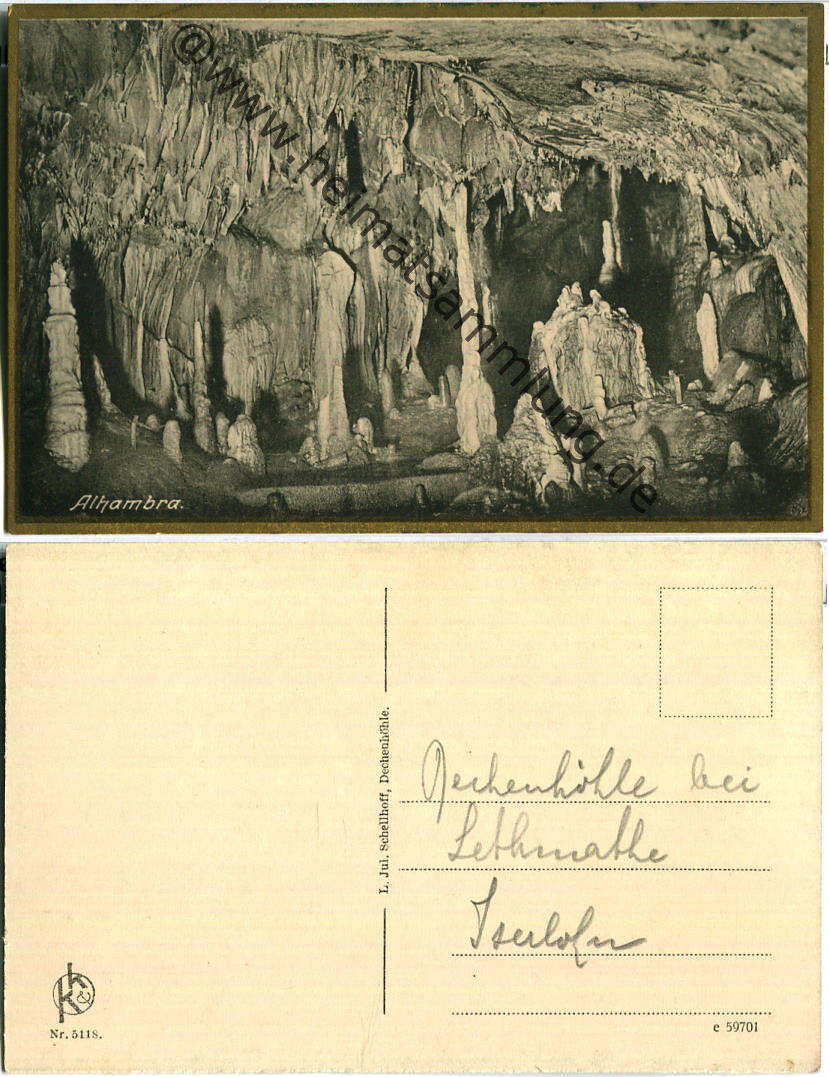 @www.heimatsammlung.de
Alhambra.
L. Jul. Schellhoff, Dechenhöhle.
Dechenhöhle bei
Lethmathe
Iserlohn
k & k
Nr. 5118.
e 59701